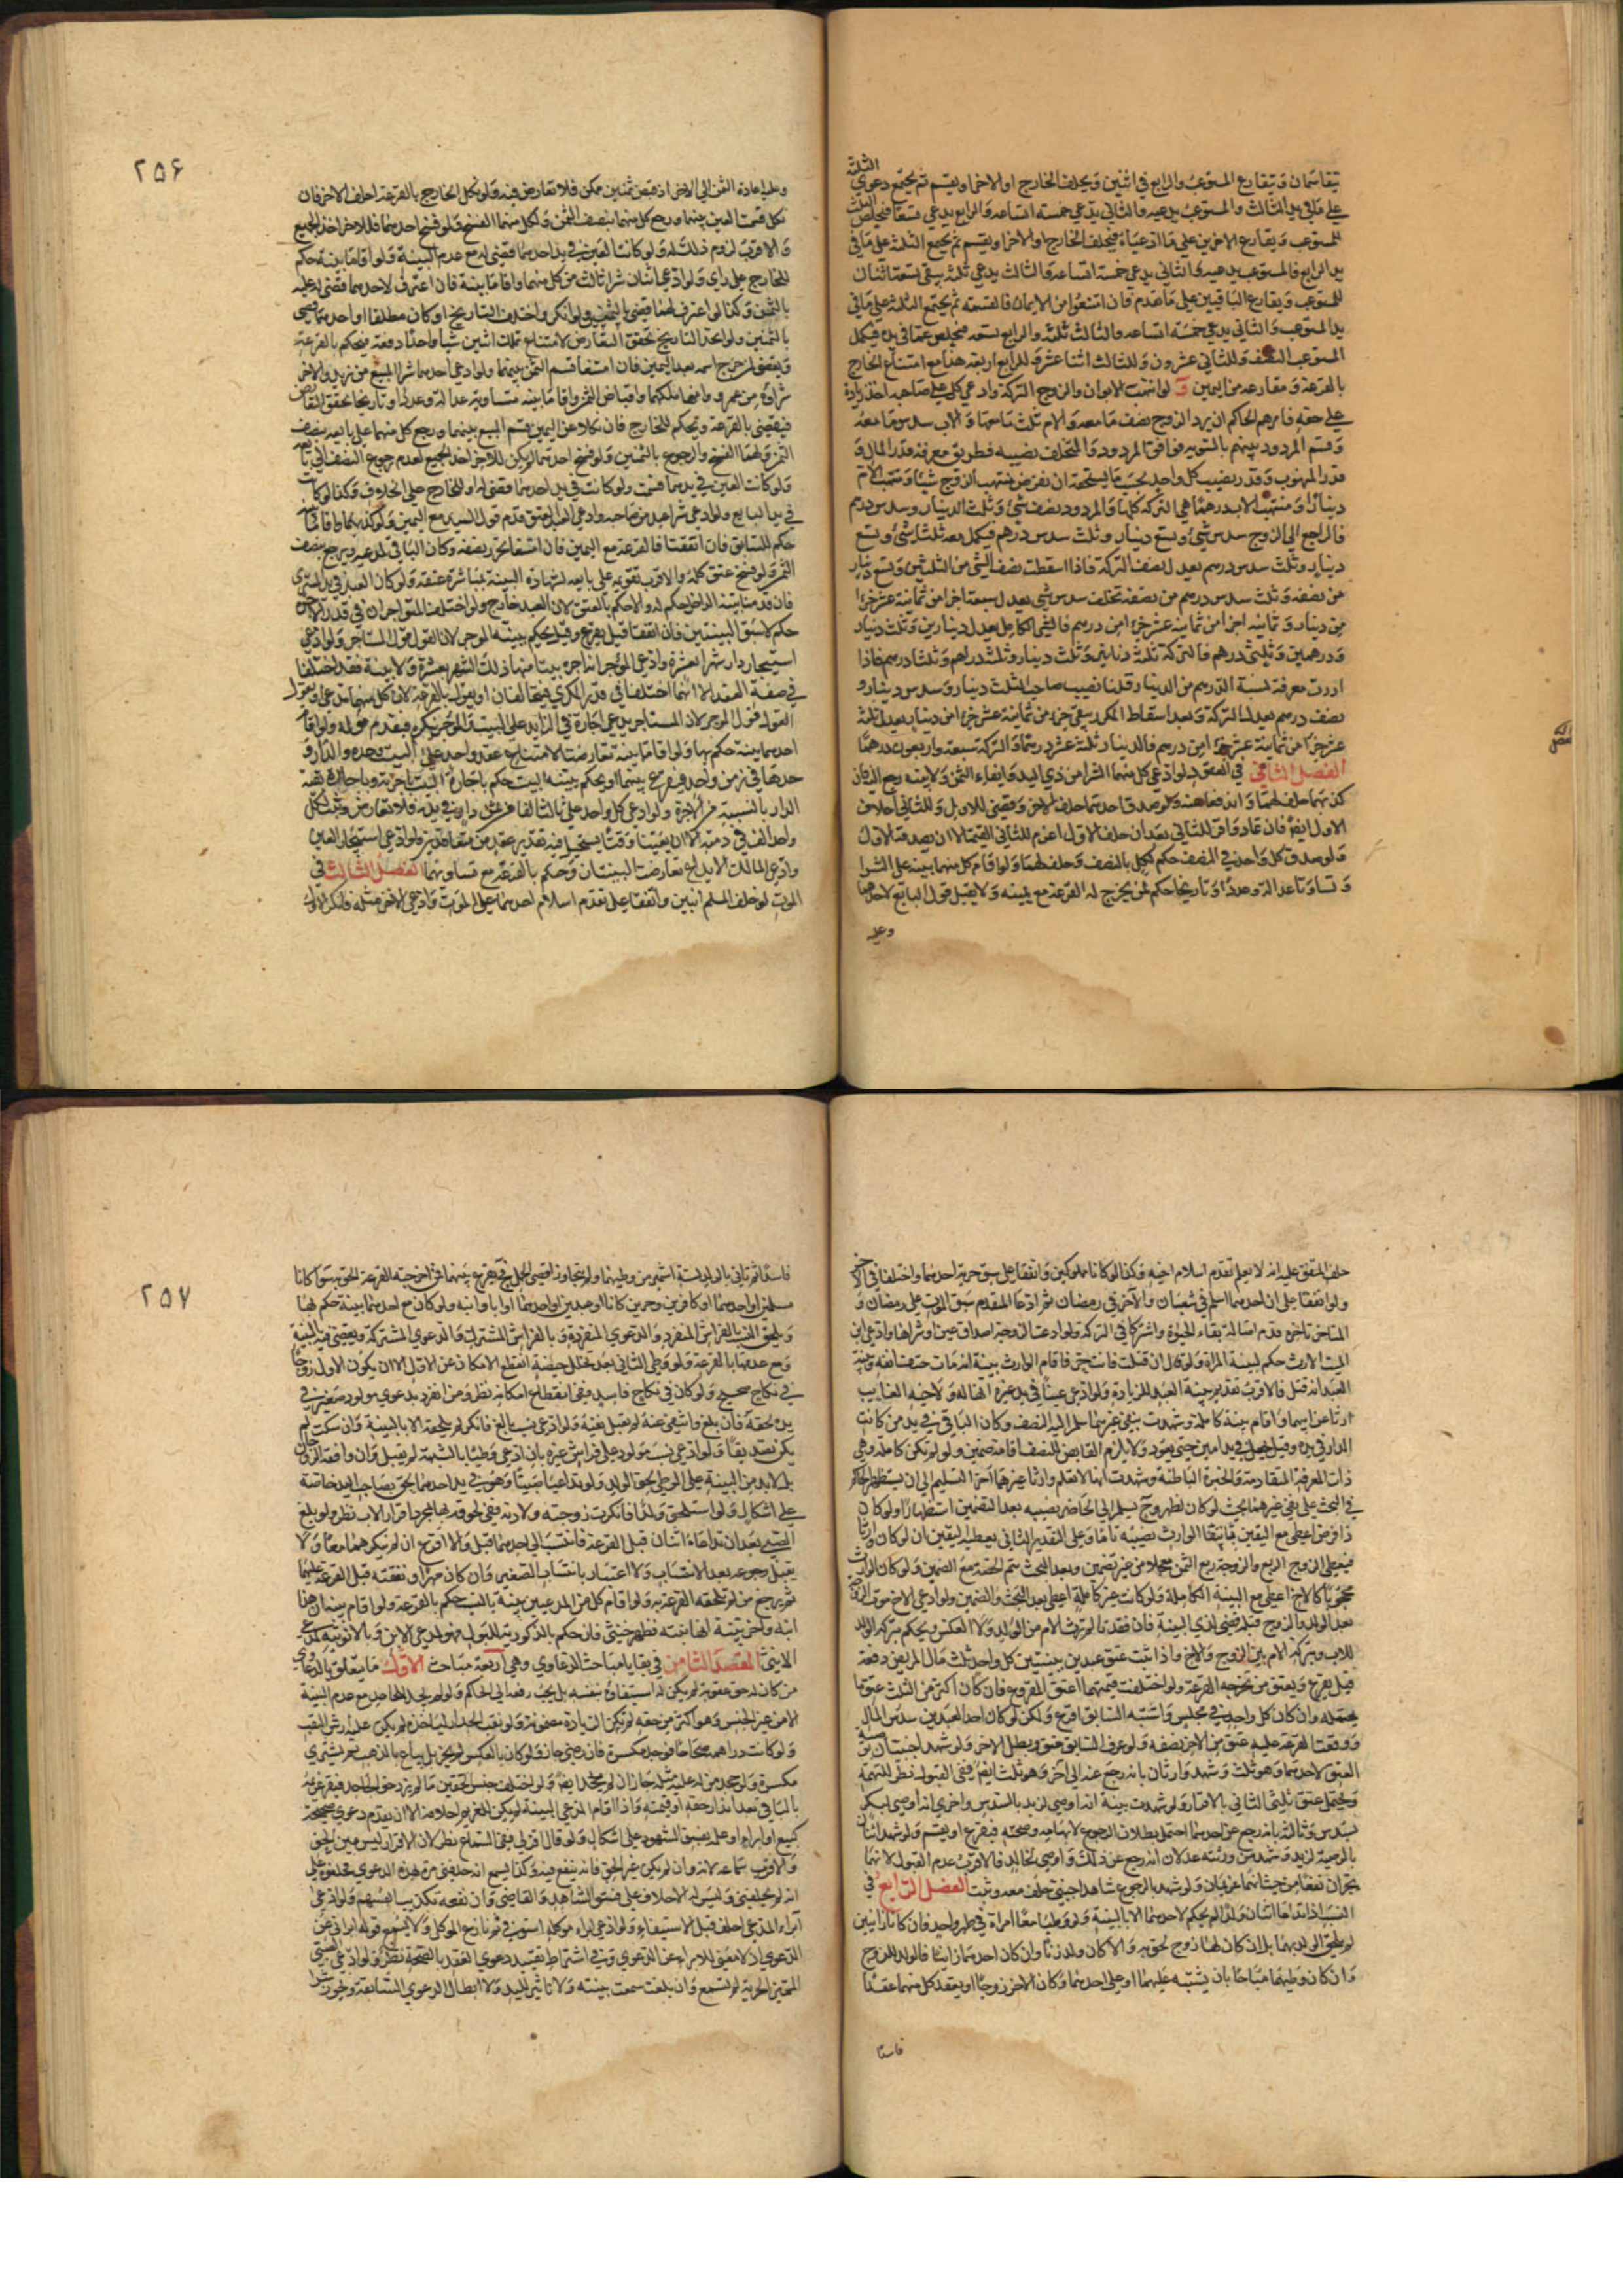 الثلثة
يتقاسمان ويتقارع المستوعب والرابع في اثنين ويحلف الخارج او الاخر او يقسم ثم يجتمع دعوي
على ما في يد الثالث والمستوعب يدعيه والثاني يدعي خمسة اتساعه والرابع يدعي تسعا فيخلص
للمستوعب ويقارع الاخرين على ما ادعياه فيحلف الخارج او الاخر او يقسم ثم يجمع الثلثة على ما في
يد الرابع فالمستوعب يدعيه والثاني يدعي خمسة اتساعه والثالث يدعي ثلثه يبقى تسعة اثنان
للمستوعب ويقارع الباقيين على ما تقدم فان امتنعوا من الايمان فالقسمة ثم يجتمع الثلثة على ما في
يد المستوعب والثاني يدعي خمسة اتساعه والثالث ثلثه والرابع تسعه فيخلص عما في يده فيكمل
المستوعب النصف وللثاني عشرون وللثالث اثنا عشر وللرابع اربعة هذا مع امتناع الخارج
بالقرعة ومقارعه من اليمين و لو انتهب الابوان والزوج التركة وادعي كل على صاحبه اخذ زيادة
على حقه فامرهم الحاكم ان يرد الزوج نصف ما معه والام ثلث ما معها والاب سدس ما معه
وقسم المردود بينهم بالسوية فوافق المردود والمتخلف نصيبه فطريق معرفة قدر المال و
قدر المنهوب وقدر نصيب كل واحد بحسب ما يستحقه ان نفرض منتهب الزوج شيئا ومنتهب الام
دينارا ومنتهب الاب درهما هي التركة كلها والمردود نصف شئ وثلث الدينار وسدس درهم
فالراجع الي الزوج سدس شئ وتسع دينار وثلث سدس درهم فيكمل معه ثلثا شئ وتسع
دينار وثلث سدس درهم يعدل نصف التركة فاذا اسقطت نصف الشئ من الثلثين وتسع دينار
من نصفه وثلث سدس درهم من نصفه تخلف سدس شئ يعدل سبعة اجزا من ثمانية عشر جزءا
من دينار وثمانية اجزا من ثمانية عشر جزءا من درهم فالشئ الكامل يعدل دينارين وثلث دينار
ودرهمين وثلثي درهم فالتركة ثلثة دنانير وثلث دينار وثلثة دراهم وثلثا درهم فاذا
اردت معرفة نسبة الدرهم من الدينار قلنا نصيب صاحب الثلث دينار وسدس دينار و
نصف درهم يعدل ثلث التركة وبعد اسقاط المكرر يبقى جزء من ثمانية عشر جزءا من دينار يعدل ثلثة
عشر جزءا من ثمانية عشر جزءا من درهم فالدينار ثلثة عشر درهما والتركة سبعة واربعون درهما
الفصل الثاني في العقود لو ادعى كل منهما الشرا من ذي اليد وايفاء الثمن ولا بينة رجع اليه فان
كذبهما حلف لهما واندفعا عنه ولو صدق احدهما حلف للاخر وقضي للاول وللثاني احلاف
الاول ايضا فان عاد واقر للثاني بعد ان حلف الاول اغرم للثاني القيمة الا ان يصدقه الاول
ولو صدق كل واحد في النصف حكم لكل بالنصف وحلف لهما ولو اقام كل منهما بينة على الشرا
وتساوتا عدالة وعددا وتاريخا حكم لمن يخرج له القرعة مع يمينه ولا يقبل قول البايع لاحدهما
وعليه
٢٥٦
وعليه اعادة الثمن الي الاخر اذ قبض ثمنين ممكن فلا تعارض فيه ولو نكل الخارج بالقرعة احلف الاخر فان
نكل قسمت العين بينهما ورجع كل منهما بنصف الثمن ولكل منهما الفسخ ولو فسخ احدهما فللاخر اخذ الجميع
والاقرب لزوم ذلك له ولو كانت العين في يد احدهما قضي له مع عدم البينة ولو اقاما بينة حكم
للخارج على راي ولو ادعى اثنان شرا ثالث من كل منهما واقاما بينة فان اعترف لاحدهما قضي له عليه
بالثمن وكذا لو اعترف لهما قضي بالثمنين ولو انكر واختلف التاريخ او كان مطلقا او احدهما قضي
بالثمنين ولو اتحد التاريخ تحقق التعارض لامتناع تملك اثنين شيئا واحدا دفعة فيحكم بالقرعة
ويقضي لمن خرج اسمه بعد اليمين فان امتنعا قسم الثمن بينهما ولو ادعى احدهما شرا المبيع من زيد والاخر
شراؤه من عمرو وانهما ملكهما واقباض الثمن واقاما بينة متساوية عدالة وعددا وتاريخا تحقق التعارض
فيقضى بالقرعة ويحكم للخارج فان نكلا عن اليمين قسم المبيع بينهما ورجع كل منهما على بايعه بنصف
الثمن ولهما الفسخ والرجوع بالثمنين ولو فسخ احدهما لم يكن للاخر اخذ الجميع لعدم رجوع النصف الي بايعه
ولو كانت العين في يدهما قسمت ولو كانت في يد احدهما قضي له او للخارج على الخلاف وكذا لو كانت
في يد البايع ولو ادعى شرا عبد من صاحبه وادعى العبد العتق قدم قول السيد مع اليمين ولو كذبهما واقاما بينة
حكم للسابق فان اتفقتا فالقرعة مع اليمين فان امتنعا تحرر نصفه وكان الباقي لمدعيه ويرجع بنصف
الثمن ولو فسخ عتق كله والاقرب تقويمه على بايعه لشهادة البينة بمباشرة عتقه ولو كان العبد في يد المشتري
فان قدمنا بينة الداخل حكم له والا حكم بالعتق لان العبد خارج ولو اختلف المتواجران في قدر الاجرة
حكم لاسبق البينتين فان اتفقتا قيل يقرع وقيل يحكم ببينة الموجر لان القول قول المستاجر ولو ادعى
استيجار دار شهرا بعشرة وادعى المؤجر انه اجره بيتا منها ذلك الشهر بعشرة ولا بينة فقد اختلفا
في صفة العقد الا انهما اختلفا في قدر المكري فيتحالفان او يعول بالقرعة لان كل منهما مدعى او يقول
القول قول الموجر لان المستاجر يدعي اجارة في الزايد على البيت والموجر ينكره فيقدم قوله ولو اقام
احدهما بينة حكم بها ولو اقاما بينة تعارضتا لامتناع عقد واحد على البيت وحده والدار و
حدها في زمن واحد فيقرع بينهما او يحكم ببينة البيت حكم باجارة البيت باجرته وباجارة بقية
الدار بالنسبة من الاجرة ولو ادعى كل واحد على ثالث الفا من ثمن دار في يده فلا تعارض وثبت لكل
واحد الف في ذمته الا ان يعينا وقتا يستحيل فيه تقدير عقدين متعاقبين ولو ادعى استيجار العين
وادعى المالك الايداع تعارضت البينتان وحكم بالقرعة مع تساويهما الفصل الثالث في
الموت لو خلف المسلم ابنين واتفقا على تقدم اسلام احدهما على الموت وادعى الاخر مثله فانكر الاول
حلف المتفق عليه انه لا يعلم تقدم اسلام اخيه وكذا لو كانا مملوكين واتفقا على سبق حرية احدهما واختلفا في الاخر
ولو اتفقا على ان احدهما اسلم في شعبان والآخر في رمضان ثم ادعا المقدم سبق الموت على رمضان و
المتاخر تاخره قدم اصالة بقاء الحيوة واشتركا في التركة ولو ادعت الزوجة اصداق عين او شراها وادعى ابن
الميت الارث حكم لبينة المراة ولو قال ان قتلت فانت حر فاقام الوارث بينة انه مات حتف انفه وبينة
العبد انه قتل فالاقرب تقديم بينة العبد للزيادة ولو ادعى عينا في يد غيره انها له ولاخيه الغايب
ارثا عن ابيهما واقام بينة كاملة وشهدت بنفي غيرهما سلم اليه النصف وكان الباقي في يد من كانت
الدار في يده وقيل يجعل في يد امين حتى يعود ولا يلزم القابض للنصف اقامة ضمين ولو لم تكن كاملة وهي
ذات المعرفة المتقادمة والخبرة الباطنة وشهدت انها لا تعلم وارثا غيرهما اخر التسليم الى ان يستظهر الحاكم
في البحث على نفي غيرهما بحيث لو كان لظهر وح يسلم الي الحاضر نصيبه بعد التضمين استظهارا ولو كان
ذا فرض اعطى مع اليقين بانتفاء الوارث نصيبه تاما وعلى التقدير الثاني يعطيه اليقين ان لو كان وارثا
فيعطى الزوج الربع والزوجة ربع الثمن معجلا من غير تضمين وبعد البحث يتم الحصة مع الضمين ولو كان الوارث
محجوبا كالاخ اعطي مع البينة الكاملة ولو كانت غير كاملة اعطي بعد البحث والضمين ولو ادعى الاخ موت الزوجة
بعد الولد والزوج قبله قضي لذي البينة فان فقدتا لم ترث الام من الولد ولا العكس ويحكم بتركة الولد
للاب وبتركة الام بين الزوج والاخ واذا ثبت عتق عبدين ببينتين كل واحد ثلث مال المريض دفعة
قيل يقرع ويعتق من تخرجه القرعة ولو اختلفت قيمتهما اعتق المقروع فان كان اكثر من الثلث عتق ما
يحتمله وان كان كل واحد في مجلس واشتبه السابق اقرع ولكن لو كان احد العبدين سدس المال
ووقعت القرعة عليه عتق من الاخر نصفه ولو عرف السابق عتق وبطل الاخر ولو شهد اجنبيان بوصية
العتق لاحدهما وهو ثلث وشهد وارثان بانه رجع عنه الي آخر وهو ثلث ايضا ففي القبول نظر للتهمة
ويحتمل عتق ثلثي الثاني بالاقرار ولو شهدت بينة انه اوصى لزيد بالسدس واخرى انه اوصى لبكر
بسدس وثالثة بانه رجع عن احدهما احتمل بطلان الرجوع لابهامه وصحته فيقرع او يقسم ولو شهد اثنان
بالوصية لزيد وشهد من ورثته عدلان انه رجع عن ذلك واوصى لخالد فالاقرب عدم القبول لانهما
يجران نفعا من حيث انهما غريمان ولو شهد بالرجوع شاهد اجنبي حلف معه وثبت الفصل الرابع في
النسب اذا تداعيا اثنان ولدا لم يحكم لاحدهما الا بالبينة ولو وطيا معا امراة في طهر واحد فان كانا زانيين
لم يلحق الولد بهما بل ان كان لها زوج لحق به والا كان ولد زنا وان كان احدهما زانيا فالولد للزوج
وان كان وطيهما مباحا بان يشتبه عليهما او على احدهما وكان الاخر زوجا او يعقد كل منهما عقدا
فاسدا
٢٥٧
فاسدا ثم تاتي بالولد لستة اشهر من وطيهما ولم يتجاوز اقصى الحمل فح يقرع بينهما فمن اخرجته القرعة الحق به سوا كانا
مسلمين او احدهما او كافرين وحرين كانا او عبدين او احدهما او ابا وابنه ولو كان مع احدهما بينة حكم لها
ويلحق النسب بالفراش المنفرد والدعوى المنفردة وبالفراش المشترك والدعوى المشتركة ويقضى فيه بالبينة
ومع عدمها بالقرعة ولو وطي الثاني بعد تخلل حيضة انقطع الامكان عن الاول الا ان يكون الاول زوجا
في نكاح صحيح ولو كان في نكاح فاسد ففي انقطاع امكانه نظر ومن انفرد بدعوى مولود صغير في
يده لحقه فان بلغ وانتفى عنه لم يقبل نفيه ولو ادعى نسب بالغ فانكر لم يلحقه الا بالبينة وان سكت لم
يكن تصديقا ولو ادعى نسب مولود على فراش غيره بان ادعى وطئا بالشبهة لم يقبل وان وافقه الزوجان
بل لابد من البينة على الوطي لحق الولد ولو تداعيا صبيا وهو في يد احدهما لحق بصاحب اليد خاصة
على اشكال ولو استلحق ولدا فانكرت زوجته ولادته ففي لحوقه بها بمجرد اقرار الاب نظر ولو بلغ
الصبي بعد ان تداعاه اثنان قبل القرعة فانتسب الي احدهما قبل والا اقرع ان لم ينكرهما معا ولا
يقبل رجوعه بعد الانتساب ولا اعتبار بانتساب الصغير وان كان مميزا ونفقته قبل القرعة عليهما
ثم يرجع من لم تلحقه القرعة به ولو اقام كل من المدعيين بينة بالنسب حكم بالقرعة ولو اقام بينة ان هذا
ابنه واخر بينة انها بنته فظهر خنثى فان حكم بالذكورية للبول فهو لمدعي الابن وبالانوثية لمدعي
الابنة المقصد الثامن في بقايا مباحث الدعاوي وهي اربعة مباحث الاول ما يتعلق بالدعاوي
من كان له حق عقوبة لم يكن له استيفاؤه بنفسه بل يجب رفعه الي الحاكم ولو لم يجد الجاحد مع عدم البينة
الا من غير الجنس وهو اكثر من حقه لم تكن الزيادة مضمونة ولو نقب الجدار لياخذه لم يكن عليه ارش النقب
ولو كانت دراهمه صحاحا فوجد مكسرة فان رضي جاز ولو كان بالعكس لم يجز بل يباع بالذهب ثم يشترى
مكسرة ولو جحد من له عليه مثله جاز ان لم يجحد ايضا ولو اختلف جنس الحقين ما لم يزد حق الجاحد فيقر غريمه
بالباقي بعد انذار حقه او قيمته واذا اقام المدعي البينة لم يكن للغريم احلافه الا ان يقدم دعوى صحيحة
كبيع او ابراء او علمه بفسق الشهود على اشكال ولو قال اقر لي ففي السماع نظر لان الاقرار ليس عين الحق
والاقرب سماعه لانه وان لم يكن عين الحق فانه ينفع فيه وكذا يسمع انه حلفني مرة لهذه الدعوى فيحلفه على
انه لم يحلفني وليس له الاحلاف على فسق الشاهد والقاضي وان نفعه تكذيب انفسهم ولو ادعى
ابراء المدعي احلف قبل الاستيفاء ولو ادعى ابراء موكله استوفي ثم نازع الموكل ولا يسمع قوله ابراني عن
الدعوى اذ لا معنى للابراء عن الدعوى وفي اشتراط تقييد دعوى العقد بالصحة نظر ولو ادعى الصبي
المميز الحرية لم تسمع وان بلغت سمعت بينته ولا تاثير لليد ولا ابطال الدعوى السابقة ويجوز شرا